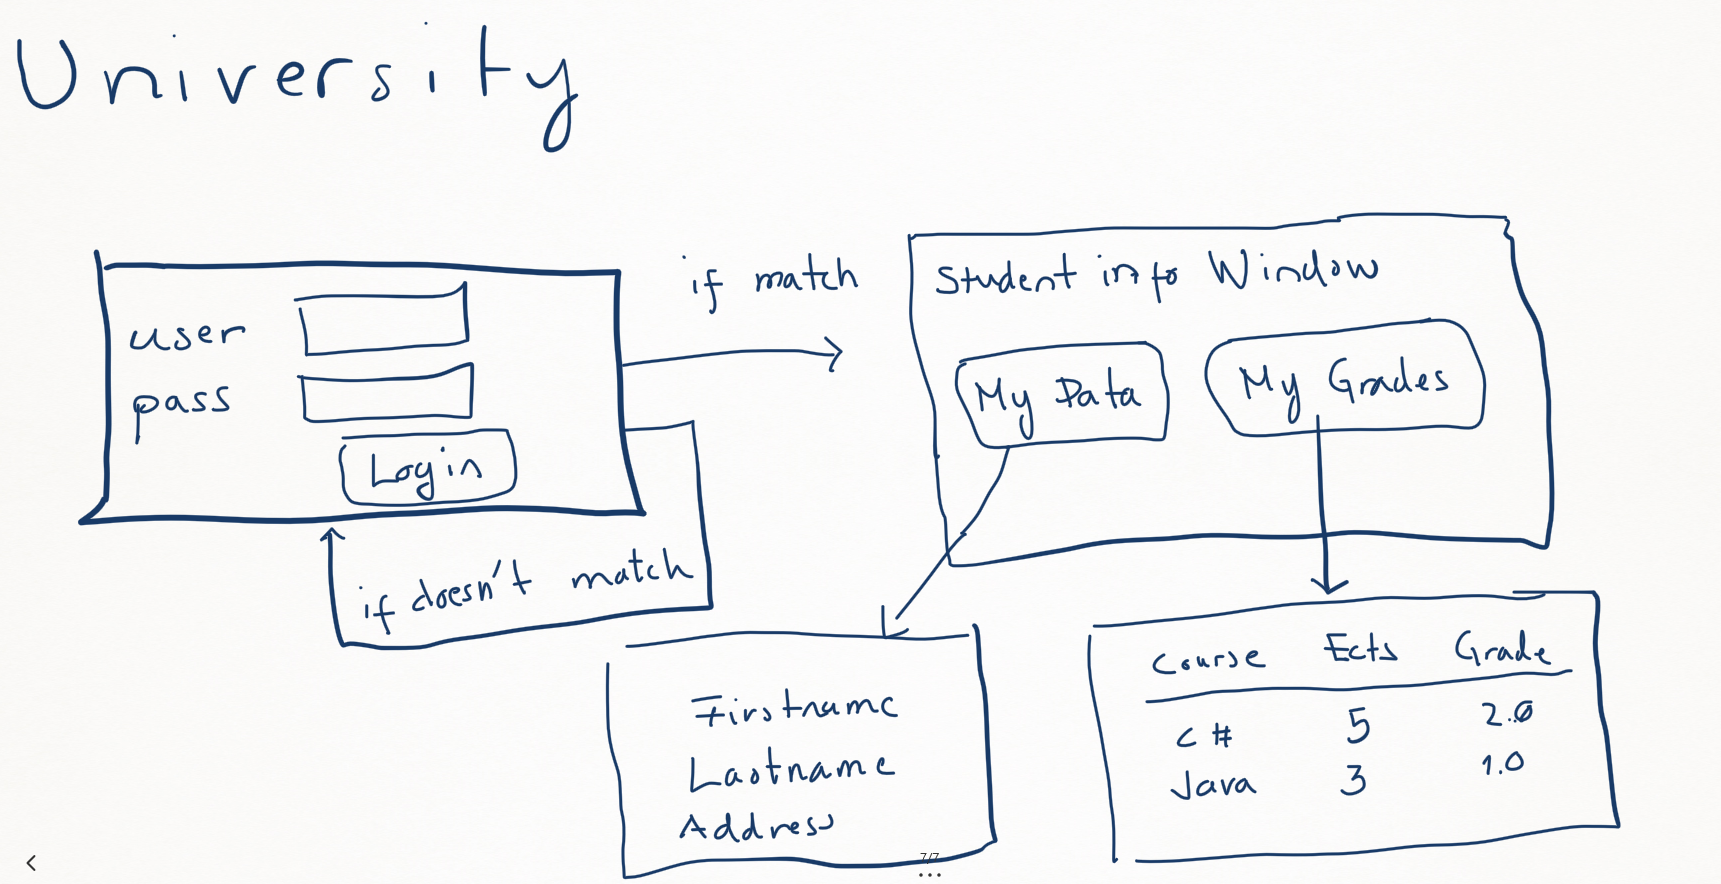 University
user
pass
Login
if match
if doesn't match
Student info Window
My Data
My Grades
Firstname
Lastname
Address
Course Ects Grade
C# 5 2.0
Java 3 1.0
7/7